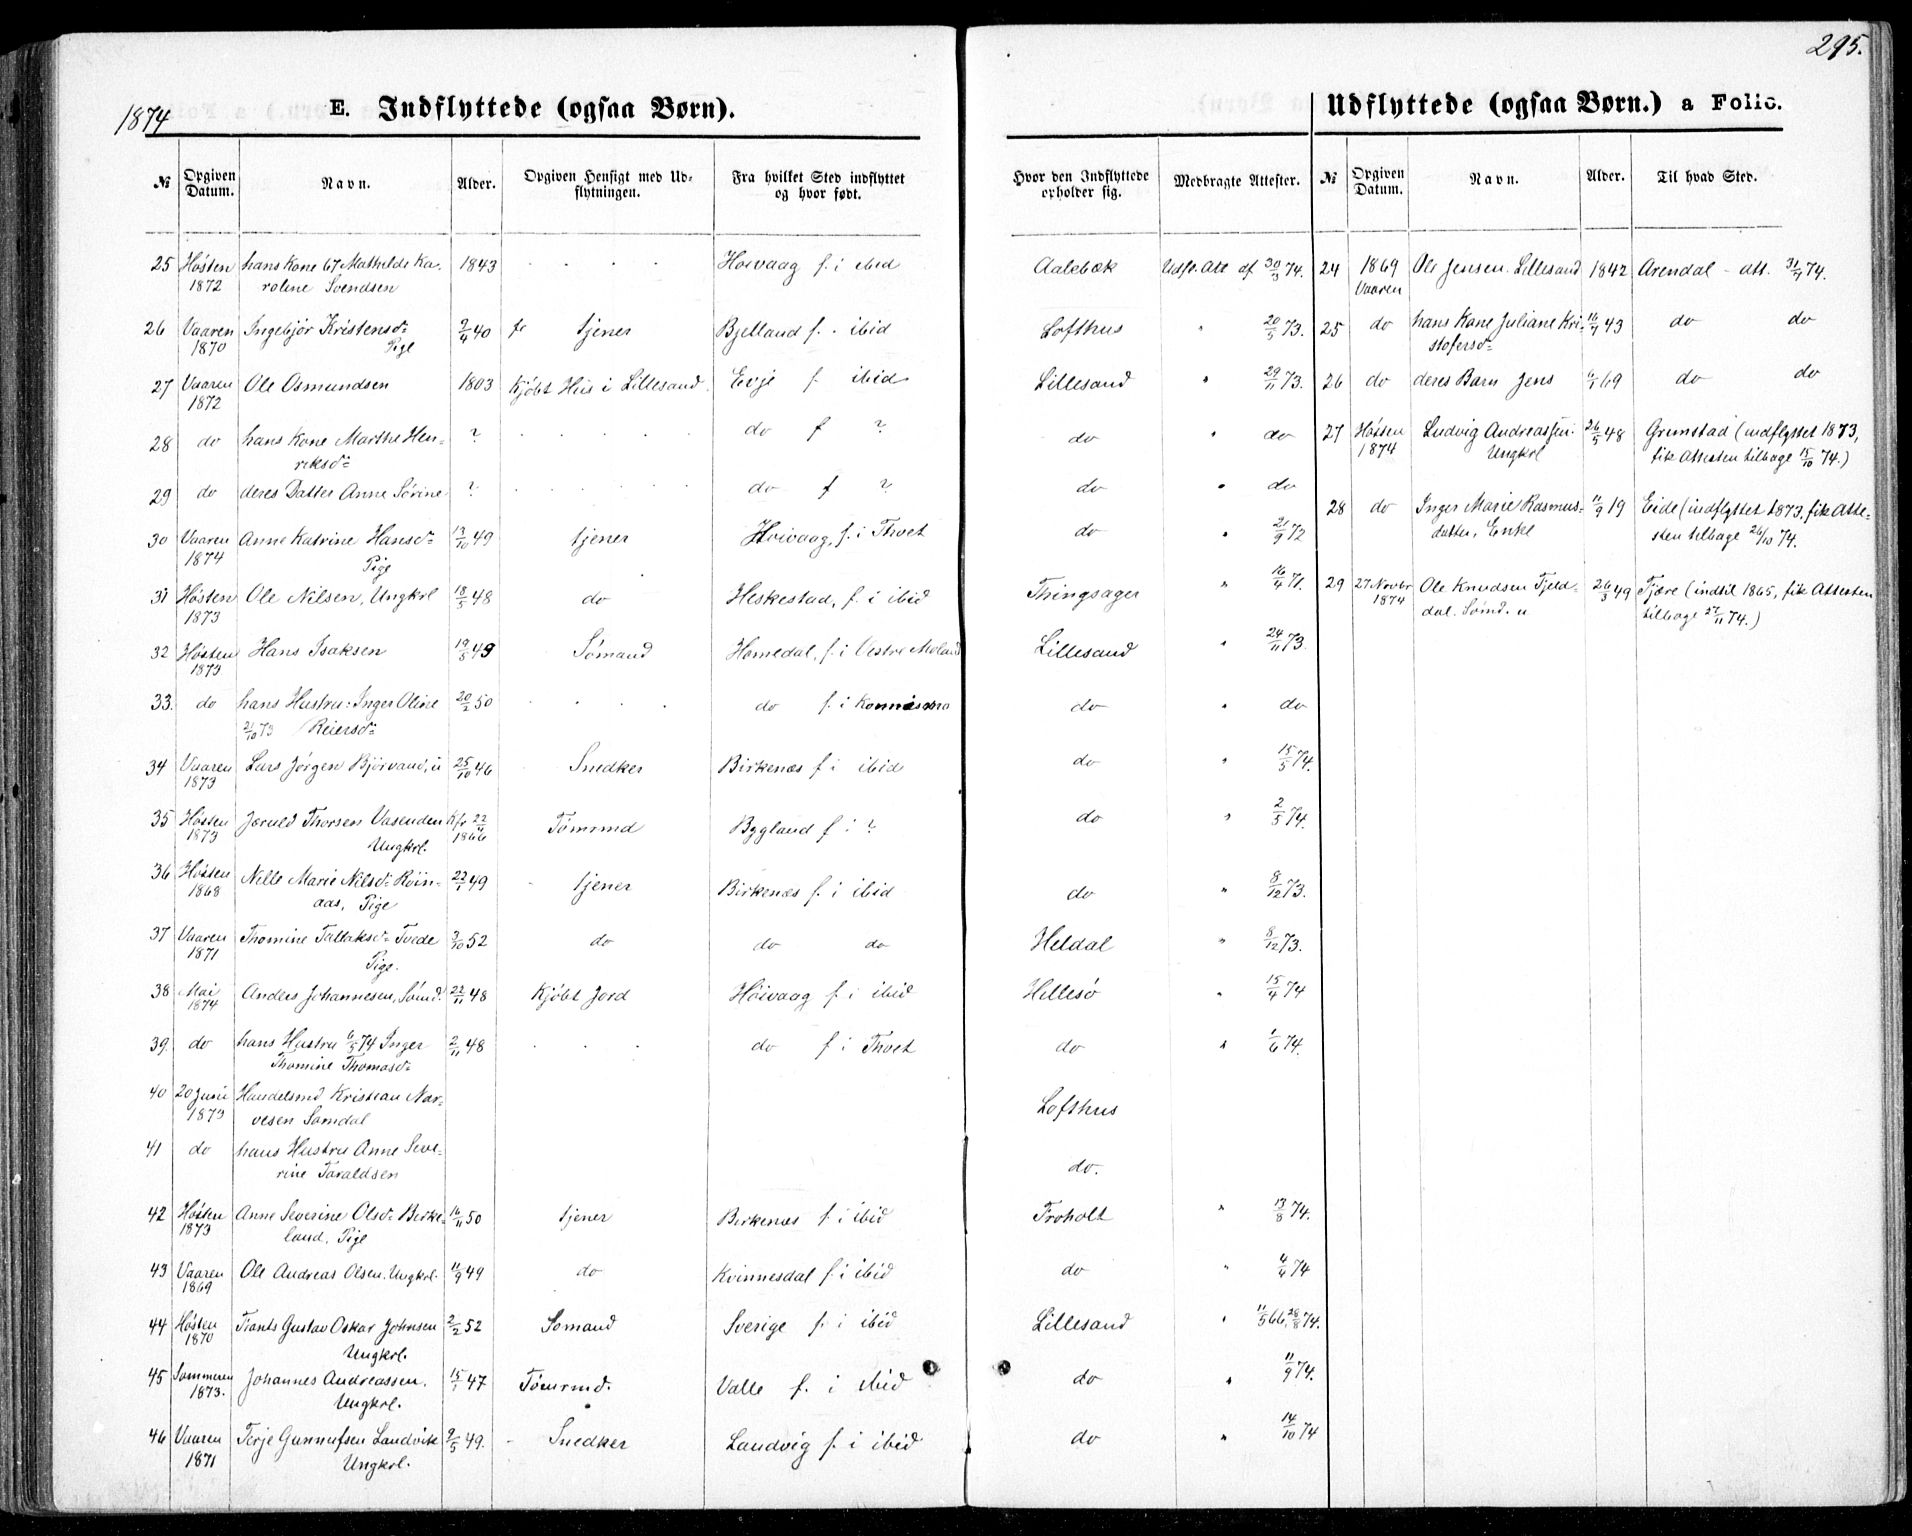 295.
1874
E. Indflyttede (ogsaa Børn).
Udflyttede (ogsaa Børn.) a Folio.
№ | Opgiven Datum. | Navn. | Alder. | Opgiven Hensigt med Udflytningen. | Fra hvilket Sted indflyttet og hvor født. | Hvor den Indflyttede opholder sig. | Medbragte Attester.
25 | Høsten 1872 | hans Kone 67 Mathilde Karoline Svendsen | 1843 | Høivaag f. i ibid | Aalebæk | Udfl. Att af 30/3 74.
26 | Vaaren 1870 | Ingebjør Kristensd: Pige | 9/4 40 | tjener | Bjelland f. - ibid | Lofthus | " 20/5 73.
27 | Vaaren 1872 | Ole Osmundsen | 1803 | Kjøbt Hus i Lillesand. | Evje f. ibid | Lillesand | " 29/11 73.
28 | do | hans Kone Marthe Henriksd: | ? | do f ? | do | " do
29 | do | deres Datter Anne Sørine | ? | do f ? | do | " do
30 | Vaaren 1874 | Anne Katrine Hansd: Pige | 13/10 49 | tjener | Høivaag, f. i Thvet | do | " 21/9 72
31 | Høsten 1873 | Ole Nilsen, Ungkrl | 18/5 48 | do | Heskestad, f. i ibid | Thingsager | " 16/4 71.
32 | Høsten 1873 | Hans Isaksen | 19/5 49 | Sømand | Homedal, f. i Vestre Moland | Lillesand | " 24/11 73.
33. | do | hans Hustru: Inger Oline 21/10 73 Reiersd: | 20/2 50 | do f. i Konnismo | do | " do
34 | Vaaren 1873 | Lars Jørgen Bjørvand, u | 25/10 46 | Snedker | Birkenæs f. i ibid | do | " 15/5 74.
35 | Høsten 1873 | Jærned Thorsen Vasenden Ungkrl. | Kfr 22/4 1866 | Tømrmd | Bygland f i ? | do | " 2/5 74.
36 | Høsten 1868 | Nille Marie Nilsd: Röinaas, Pige | 22/1 49 | tjener | Birkenæs f. i ibid | do | " 8/12 73.
37 | Vaaren 1871 | Thomine Tallaksd: Tvede Pige. | 3/10 52 | do | do do | Heldal | " 8/12 73.
38 | Mai 1874 | Anders Johannesen, Sømd. | 22/11 48 | Kjøbt Jord | Høivaag f. i ibid | Hillesø | " 15/4 74
39. | do | hans Hustru 6/5 74 Inger Thomine Thomasd: | 2/11 48 | do f i Thvet | do | " 1/6 74.
40 | 20 Juni 1873 | Handelsmd Kristian Narvesen Somdal | Lofthus
41 | do | hans Hustru Anne Severine Taraldsen | do.
42 | Høsten 1873 | Anne Severine Olsd: Birkeland, Pige | 16/11 50 | tjener | Birkenæs f. i ibid | Froholt | " 13/8 74.
43 | Vaaren 1869 | Ole Andreas Olsen, Ungkrl. | 11/9 49 | do | Kvinnesdal f. i ibid | do | " 4/4 74
44 | Høsten 1870 | Frants Gustav Oskar Johnsen Ungkrl. | 2/2 52 | Sømand | Sverige f. i ibid | Lillesand | " 11/5 66, 28/8 74.
45 | Sommeren 1873. | Johannes Andreassen. Ungkrl. | 15/1 47 | Tømrmd. | Valle f. i ibid | do | " 11/9 74.
46 | Vaaren 1871 | Terje Gunnufsen Landvik Ungkrl. | 9/5 49. | Snedker | Landvig f. i ibid | do | " 14/10 74
№ | Opgiven Datum. | Navn. | Alder. | Til hvad Sted.
24 | 1869 Vaaren | Ole Jensen. Lillesand | 1842 | Arendal - att. 31/7 74.
25 | do | hans Kone Juliane Kristofersd: | 16/7 43 | do do
26 | do | deres Barn Jens | 6/1 69 | do do
27 | Høsten 1874 | Ludvig Andreassen. Ungkrl | 26/5 48 | Grimstad (indflyttet 1873, fik Attesten tilbage 15/10 74.)
28 | do | Inger Marie Rasmusdatter, Enke | 11/9 19 | Eide (indflyttet 1873, fik Attesten tilbage 26/10 74.
29 | 27 Novbr 1874 | Ole Knudsen Fjelddal. Sømd. u | 26/3 49 | Fjære (indtil 1865, fik Attesten tilbage 27/11 74.)